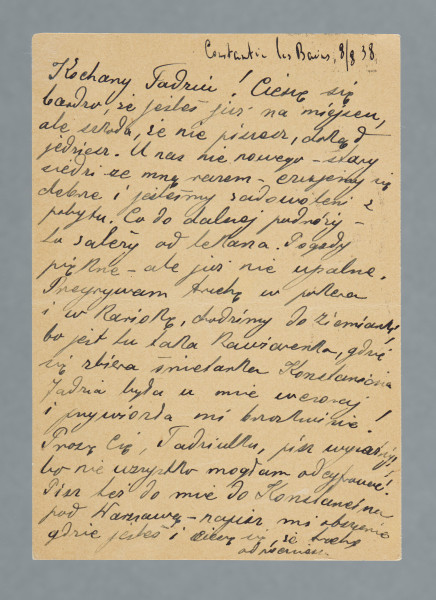 Constantin les Bains, 8/8 38.
Kochany Tadziu! Cieszę się
bardzo, że jesteś już na miejscu,
ale szkoda, że nie piszesz, dokąd
jedziesz. U nas nic nowego – stary
siedzi ze mną razem – czujemy się
dobrze i jesteśmy zadowoleni z
pobytu. Co do dalszej podróży –
to zależy od lekarza. Pogody
piękne – ale już nie upalne.
Przegrywam trochę w pokera
i w , chodzimy do Ziemianki,
bo jest tu taka kawiarenka, gdzie
się zbiera śmietanka Konstancina
Jadzia była u mnie wczoraj
i przywiozła mi brzoskwinie!
Proszę Cię, Tadziulka, pisz wyraźniej,
bo nie wszystko mogłam odcyfrować!
Pisz też do mnie do Konstancina
pod Warszawą – napisz mi obszernie
gdzie jesteś i cieszę się, że trochę